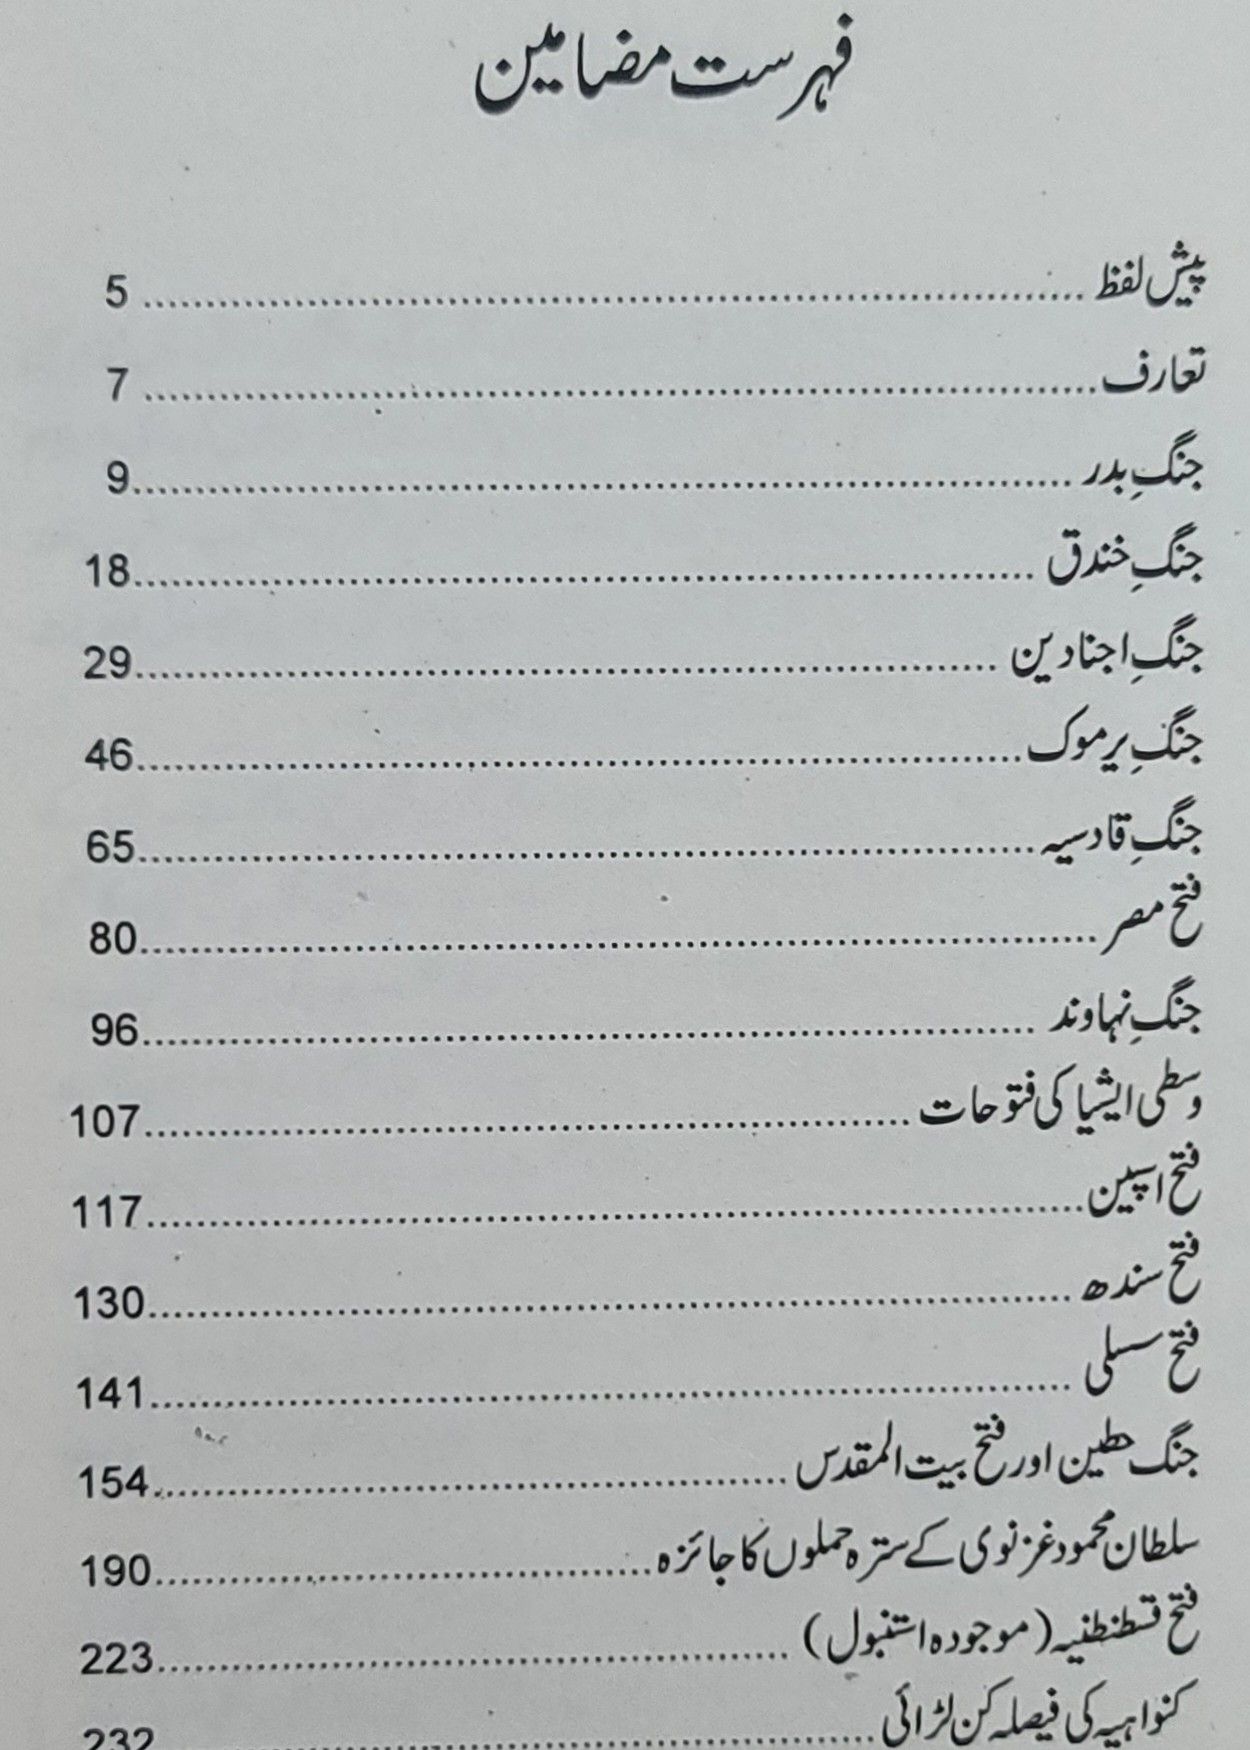 فہرست مضامین
پیش لفظ ........ 5
تعارف ........ 7
جنگِ بدر ........ 9
جنگِ خندق ........ 18
جنگِ اجنادین ........ 29
جنگِ یرموک ........ 46
جنگِ قادسیہ ........ 65
فتح مصر ........ 80
جنگِ نہاوند ........ 96
وسطی ایشیا کی فتوحات ........ 107
فتح اسپین ........ 117
فتح سندھ ........ 130
فتح سسلی ........ 141
جنگ حطین اور فتح بیت المقدس ........ 154
سلطان محمود غزنوی کے سترہ حملوں کا جائزہ ........ 190
فتح قسطنطنیہ (موجودہ استنبول) ........ 223
کنواہیہ کی فیصلہ کن لڑائی ........ 232